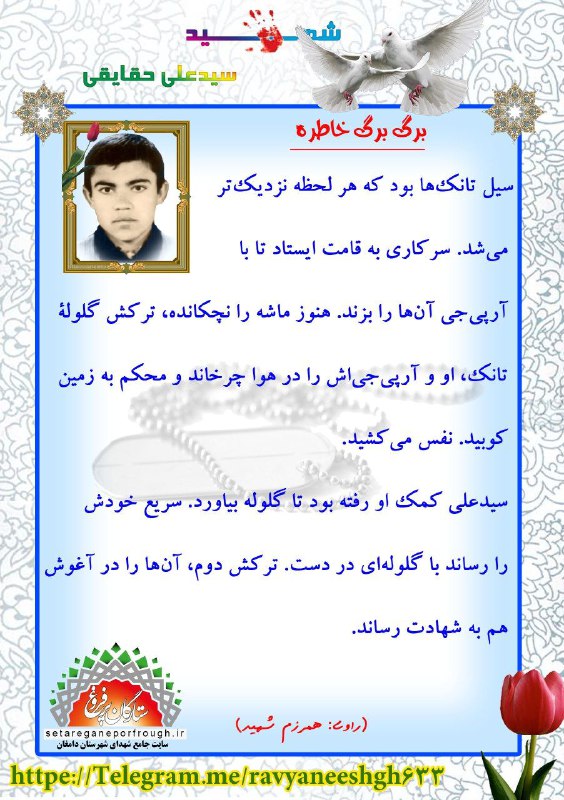 شهید
سیدعلی حقایقی
برگی برگی خاطره
سیل تانک‌ها بود که هر لحظه نزدیک‌تر
می‌شد. سرکاری به قامت ایستاد تا با
آرپی‌جی آن‌ها را بزند. هنوز ماشه را نچکانده، ترکش گلولۀ
تانک، او و آرپی‌جی‌اش را در هوا چرخاند و محکم به زمین
کوبید. نفس می‌کشید.
سیدعلی کمک او رفته بود تا گلوله بیاورد. سریع خودش
را رساند با گلوله‌ای در دست. ترکش دوم، آن‌ها را در آغوش
هم به شهادت رساند.
ستارگان پرفروغ
setareganeporfrough.ir
سایت جامع شهدای شهرستان دامغان
(راوی: همرزم شهید)
https://Telegram.me/ravyaneeshgh۶۳۳